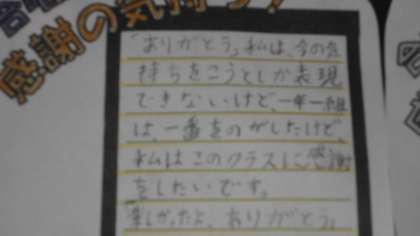 合唱
感謝の気持ち！
「ありがとう。」私は、今の気
持ちをこうとしか表現
できないけど、一年一組
は、一番をのがしたけど、
私はこのクラスに感謝
をしたいです。
楽しかったよ、ありがとう。